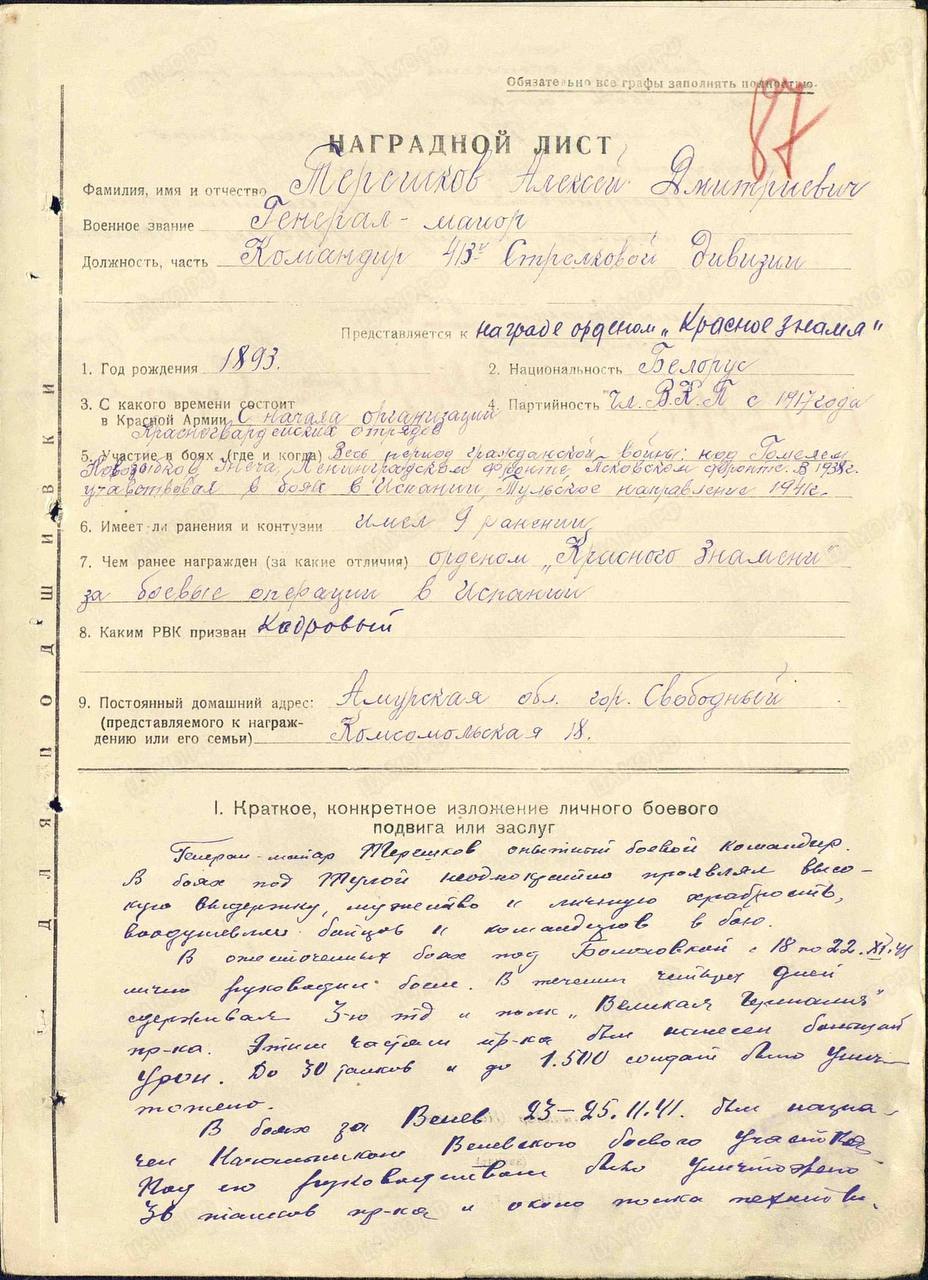 Обязательно все графы заполнять полностью.
87
НАГРАДНОЙ ЛИСТ
Фамилия, имя и отчество Терешков Алексей Дмитриевич
Военное звание Генерал-майор
Должность, часть Командир 413й Стрелковой Дивизии
Представляется к награде орденом „Красное знамя"
1. Год рождения 1893.
2. Национальность Белорус
3. С какого времени состоит
в Красной Армии С начала организации
Красногвардейских отрядов
4. Партийность Чл. В.К.П с 1917 года
5. Участие в боях (где и когда) Весь период гражданской войны: под Гомелем
Новозыбков, Ленинградском фронте, Псковском фронте. В 1938г.
участвовал в боях в Испании, Тульское направление 1941г.
6. Имеет ли ранения и контузии имел 9 ранений
7. Чем ранее награжден (за какие отличия) орденом „Красного Знамени"
за боевые операции в Испании
8. Каким РВК призван Кадровый
9. Постоянный домашний адрес: Амурская обл. гор. Свободный
(представляемого к награж-
дению или его семьи) Комсомольская 18.
ДЛЯ ПОДШИВКИ
I. Краткое, конкретное изложение личного боевого
подвига или заслуг
Генерал-майор Терешков опытный боевой командир.
В боях под Тулой неоднократно проявлял высо-
кую выдержку, мужество и личную храбрость,
воодушевляя бойцов и командиров в бою.
В ожесточенных боях под Болоховкой с 18 по 22.XI.41
лично руководил боем. В течении четырех дней
сдерживал 3-ю тд и полк „Великая Германия"
пр-ка. Этим частям пр-ка был нанесен большой
урон. До 30 танков и до 1.500 солдат было унич-
тожено.
В боях за Венев 23-25.11.41. был назна-
чен Начальником Веневского боевого участка
Под его руководством было уничтожено
30 танков пр-ка и около полка пехоты.